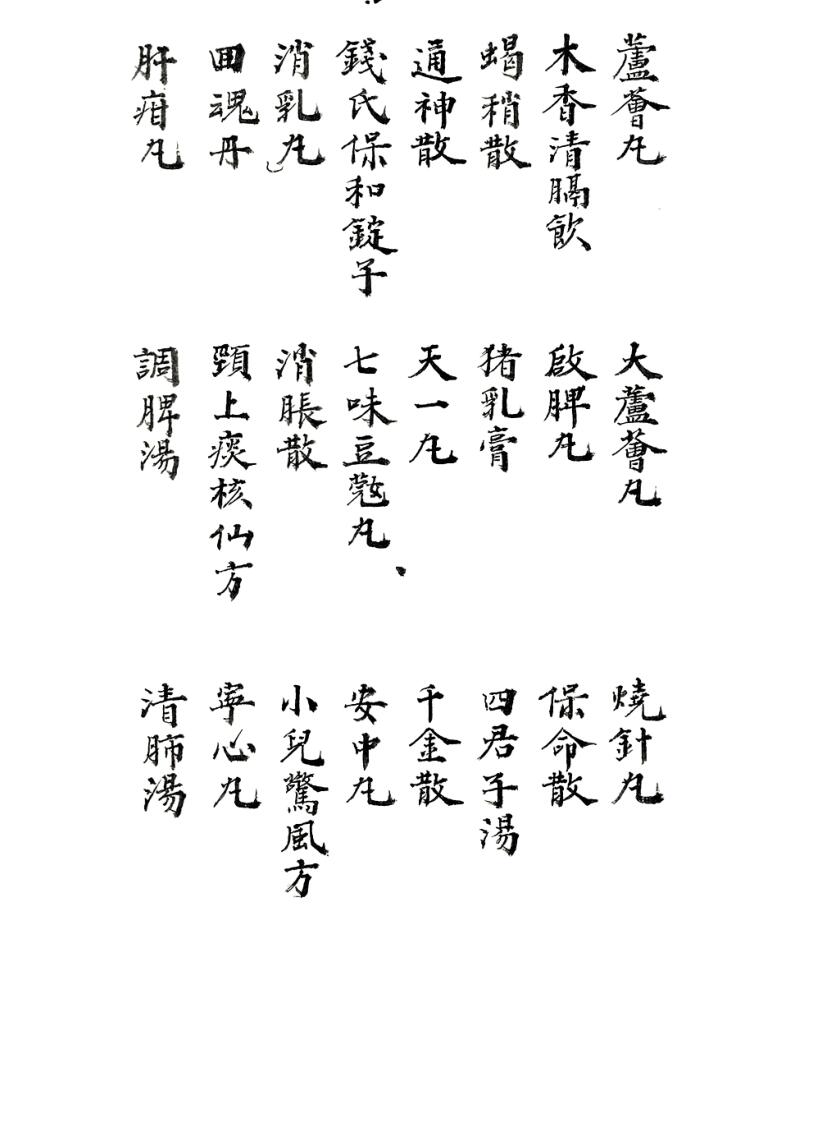 蘆薈丸 大蘆薈丸 燒針丸
木香清膈飲 啟脾丸 保命散
蝎稍散 猪乳膏 四君子湯
通神散 天一丸 千金散
錢氏保和錠子 七味豆蔻丸 安中丸
消乳丸 消脹散 小兒驚風方
囬魂丹 頸上痰核仙方 寧心丸
肝疳丸 調脾湯 清肺湯